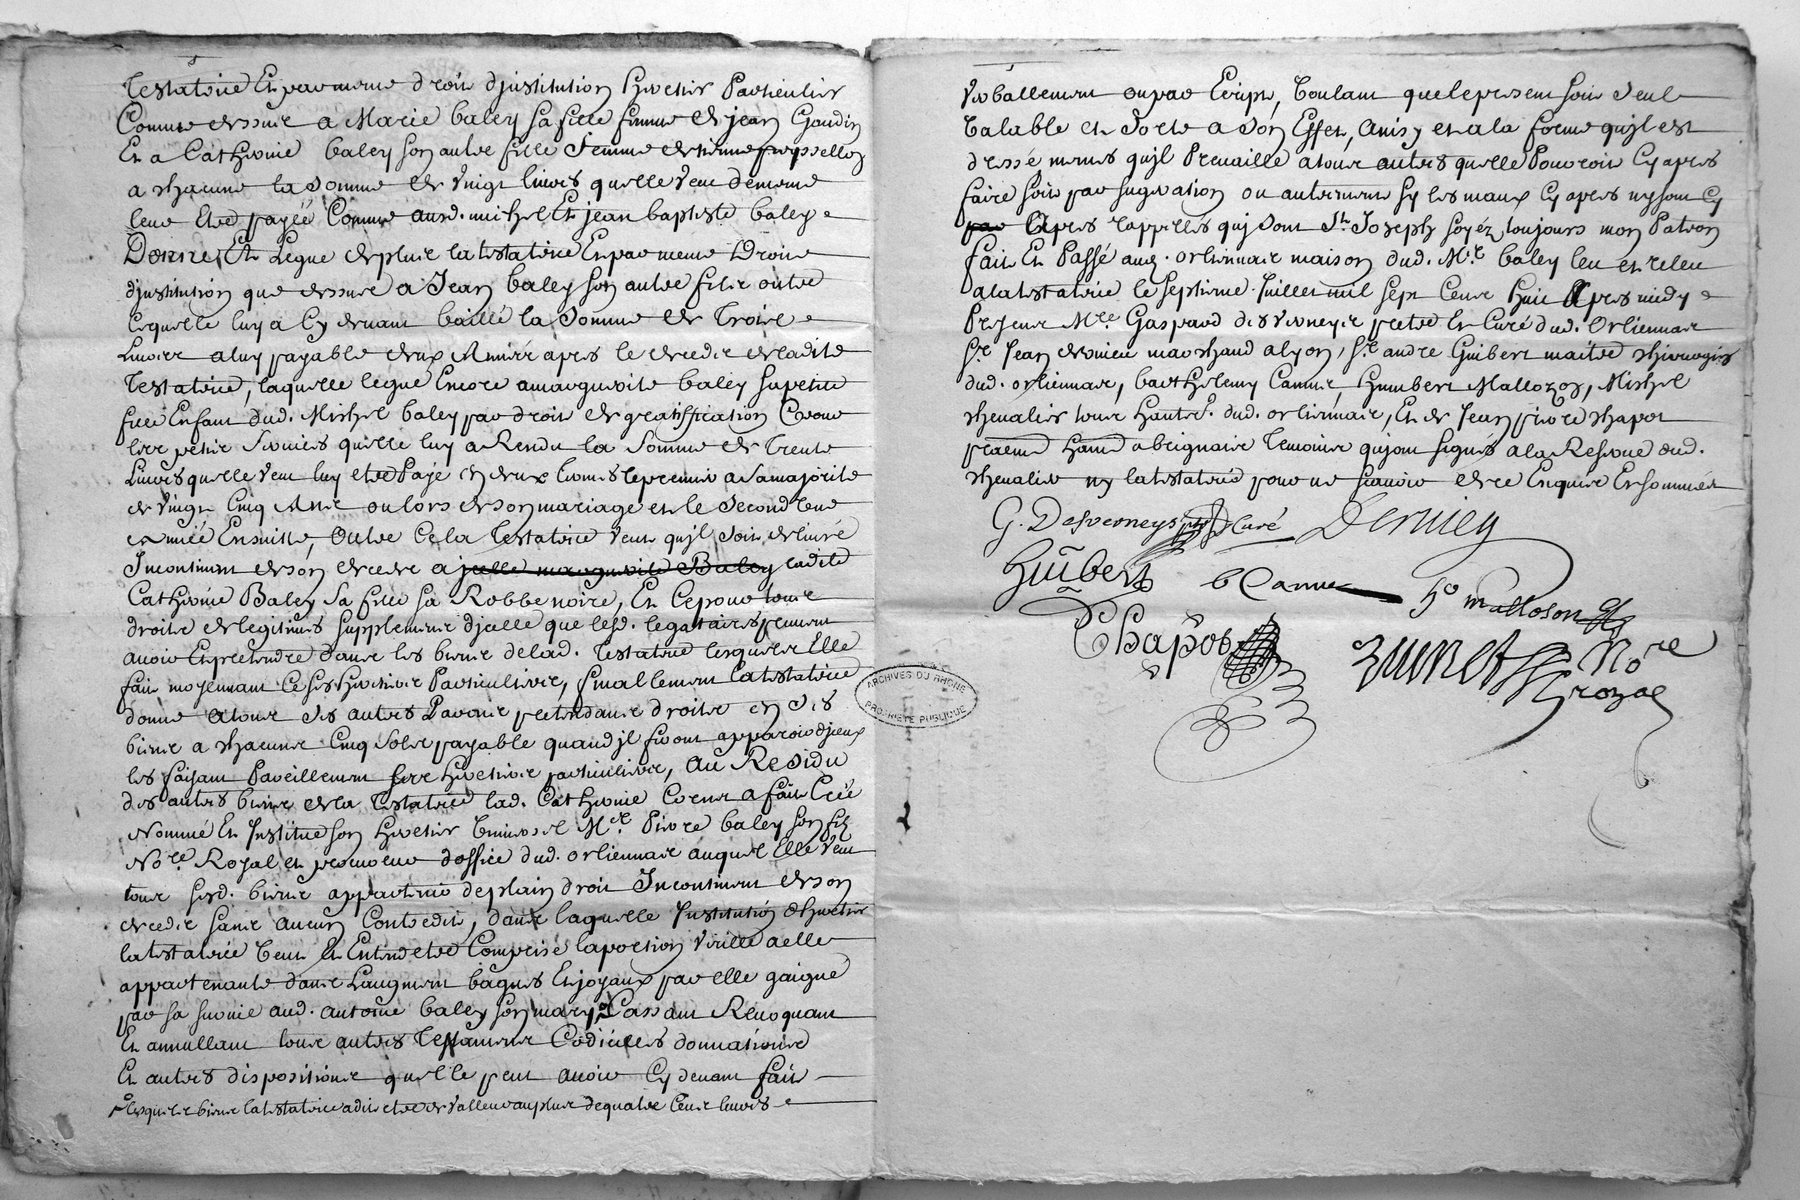 Testatrice Et par meme droit d'justitution hereticr Particulier
Comme dessus a Marie baley sa fille femme de jean Gaudin
Et a Catherine baley son autre fille femme
a chacune la somme de vingt livres quelle veut de meme
leur etre payée Comme ausd. michel Et jean baptiste baley
Donne, Et Legue de plus la testatrice En par meme Droit
d'justitution que dessus a Jean baley son autre fils outre
ce quelle luy a Cy devant baillé la somme de Trois
Livres a luy payable deux Années apres le deceds de ladite
Testatrice, laquelle legue Encore a marguerite baley sa petite
fille Enfant dud. Michel baley par droit de gratiffication Et pour
les petits services quelle luy a Rendu la Somme de Trente
Livres quelle veut luy etre Payé en deux termes le premier a sa majorité
de vingt Cinq Ans ou lors de son mariage et le Second une
année Ensuitte, Outre Ce la Testatrice veut qu'jl soit delivré
Incontinent de son deceds a jcelle marguerite Baley ladite
Catherine Baley sa fille sa Robbe noire, Et Ce pour tous
droits de legitimes supplement d'jcelle que lesd. legataires peuvent
avoir Et pretendre dans les biens de lad. Testatrice lesquels Elle
fait moyennant Ce ses heritiers Particuliers, finallement La testatrice
donne a tous ses autres Parens pretendants droits en ses
biens a chacun Cinq Sols payable quand jl seront apparoir d'jceux
les faisant Pareillement ses heritiers particuliers, Au Residu
des autres biens de la Testatrice lad. Catherine a fait Créé
Nommé Et Institué son heretier universel Mre. Pierre baley son fils
Nore. Royal et procureur d'office dud. orliennas auquel Elle veut
tous sesd. biens appartenir de plain droit Incontinent de son
deceds sans aucun Contredit, dans laquelle Institution d'heretier
la testatrice veut Et Entend etre Comprise la portion virille a elle
appartenante dans L'augment bagues Et joyaux par elle gaigné
par sa survie aud. antoine baley son mary, Cassant Revoquant
Et annullant tous autres Testaments Codicilles donnations
Et autres dispositions quelle peut avoir Cy devant fait
lesquels biens la testatrice a dit etre de valleur au plus de quatre Cens livres
Verballement ou par Ecript, voulant que le present soit seul
valable et sorte a son Effet, Et a la forme qu'jl est
dressé mêmes qu'jl Prevaille a tous autres quelle Pouvroit Cy apres
faire soit par sugestion ou autrement sy les maux Cy apres ny sont Cy
par apres rappellés qui sont St. Joseph soyez toujours mon Patron
fait Et Passé aud. orliennas maison dud. Mre. baley leu et releu
a la testatrice le septieme Juillet mil sept Cens huit Apres midy
Presens Mre. Gaspard desverneys pretre Et Curé dud. Orliennas
Sr. Jean dervieu marchand a lyon, Sr. andre Guibert maitre chirurgien
dud. orliennas, barthelemy Canus humbert Mallozon, Michel
chevalier tous hants. dud. orliennas, Et de Jean pierre chapot
hant a brignais Temoins qui ont signés a la Reserve dud.
chevalier ny la testatrice pour ne sçavoir de ce Enquis Et sommés
G. Desverneys ptre Curé Dervieu
Guibert b Canus h. malloson
Chapot Nore